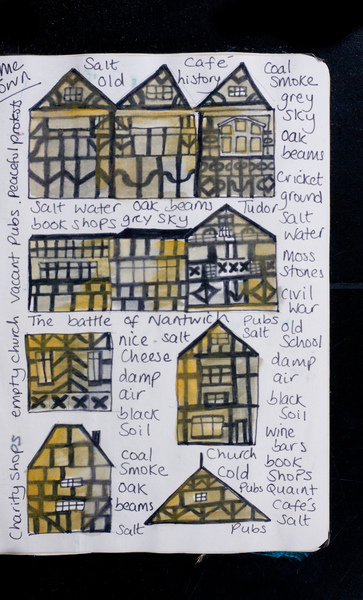 ome
own
Salt
Old
Café
history
Coal
Smoke
grey
sky
oak
beams
Cricket
ground
Salt
water
Moss
stones
civil
War
Peaceful protests
Salt water oak beams
book shops grey sky
Tudor
vacant Pubs.
The battle of Nantwich
Pubs
Salt
old
School
damp
air
black
Soil
wine
bars
book
Shops
Quaint
Café's
Salt
empty church
nice - salt
Cheese
damp
air
black
Soil
Coal
Smoke
oak
beams
Salt
Charity shops
Church
Cold
Pubs
Pubs